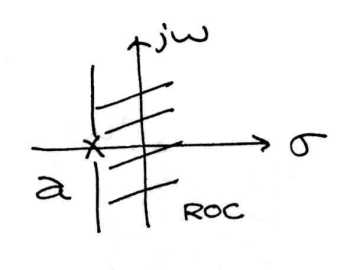 jω
σ
a
ROC